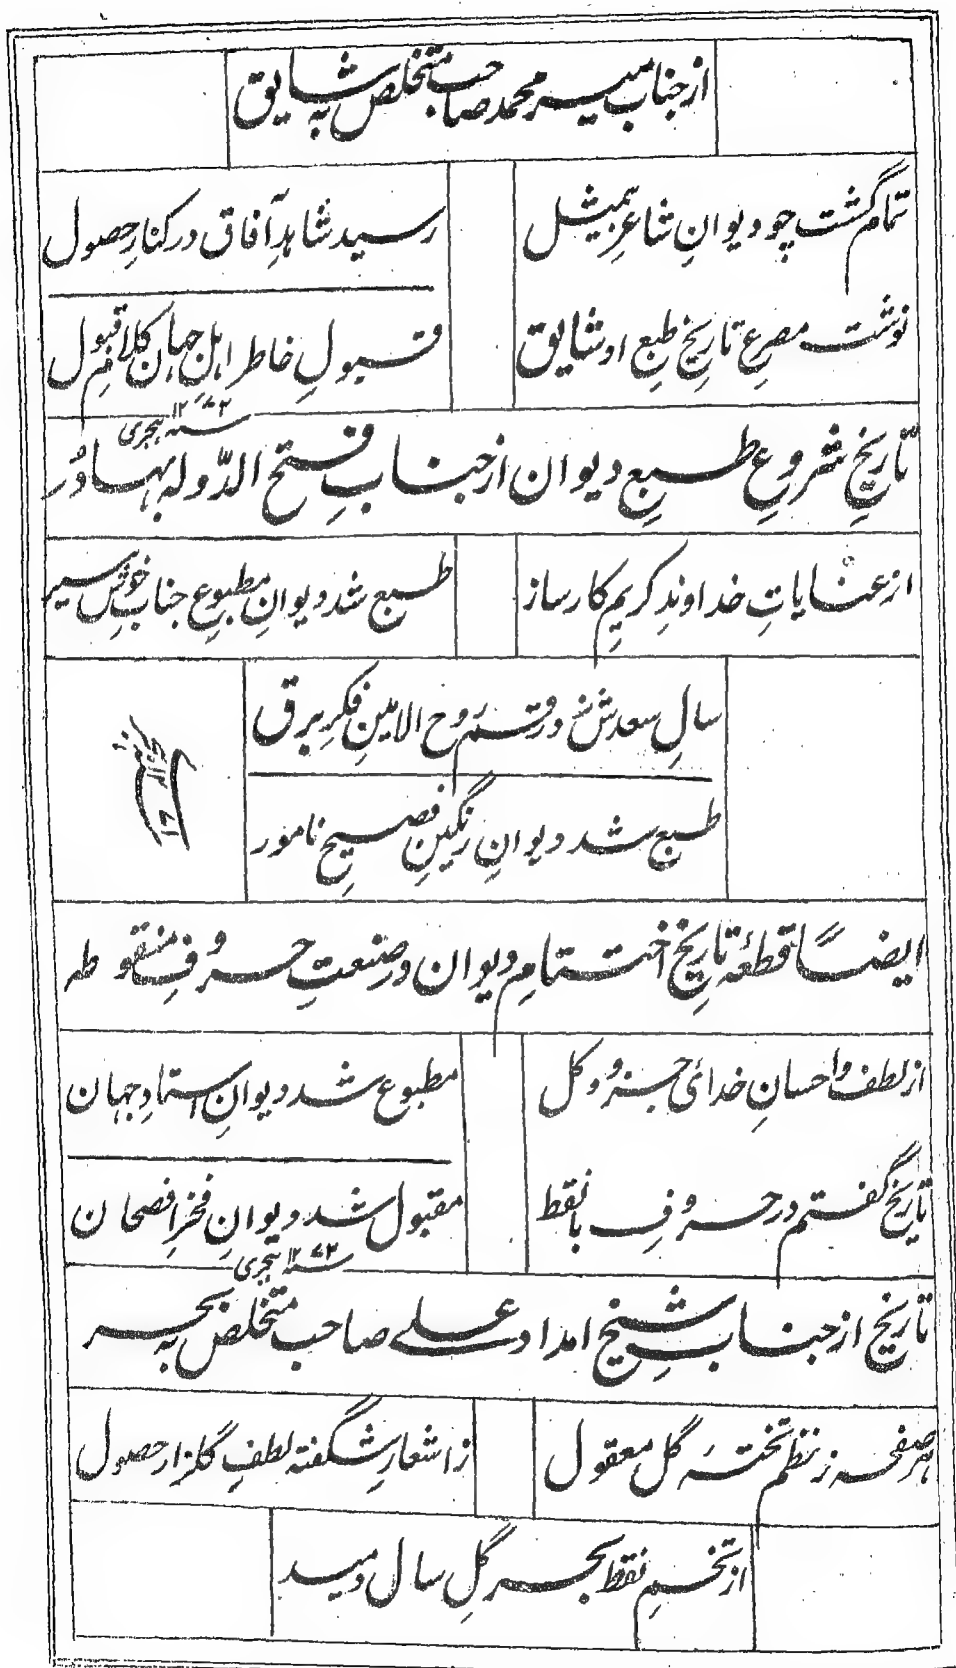 از جناب میر محمد صاحب متخلص به شایق
تمام گشت چو دیوانِ شاعرِ بمیثل
رسید شاہدِ آفاق در کنارِ حصول
نوشت مصرعِ تاریخِ طبعِ او شایق
قبولِ خاطرِ اہلِ جہان کلامِ قبول
سنہ ۱۲۷۲ ہجری
تاریخِ شروعِ طبعِ دیوان از جنابِ فتح الدّولہ بہادُر
از عنایاتِ خداوندِ کریمِ کارساز
طبع شد دیوانِ مطبوعِ جنابِ خوش سیر
سالِ سعدش زد رقم رُوح الامینِ فکرِ برق
طبع شد دیوانِ رنگینِ فصیحِ نامور
ایضاً قطعۂ تاریخِ اختتامِ دیوان در صنعتِ حروفِ منقوطہ
از لطف و احسانِ خدائ جزو و کل
مطبوع شد دیوانِ استادِ جہان
تاریخ گفتم در حروفِ با نقط
مقبول شد دیوانِ فخرِ افصحان
سنہ ۱۲۷۲ ہجری
تاریخ از جناب شیخ امداد علے صاحب متخلص بہ بحر
ہر صفحہ ز نظم تختہ گل معقول
ز اشعارِ شگفتہ لطفِ گلزار حصول
از تخمِ نقط بحر گلِ سال دمید